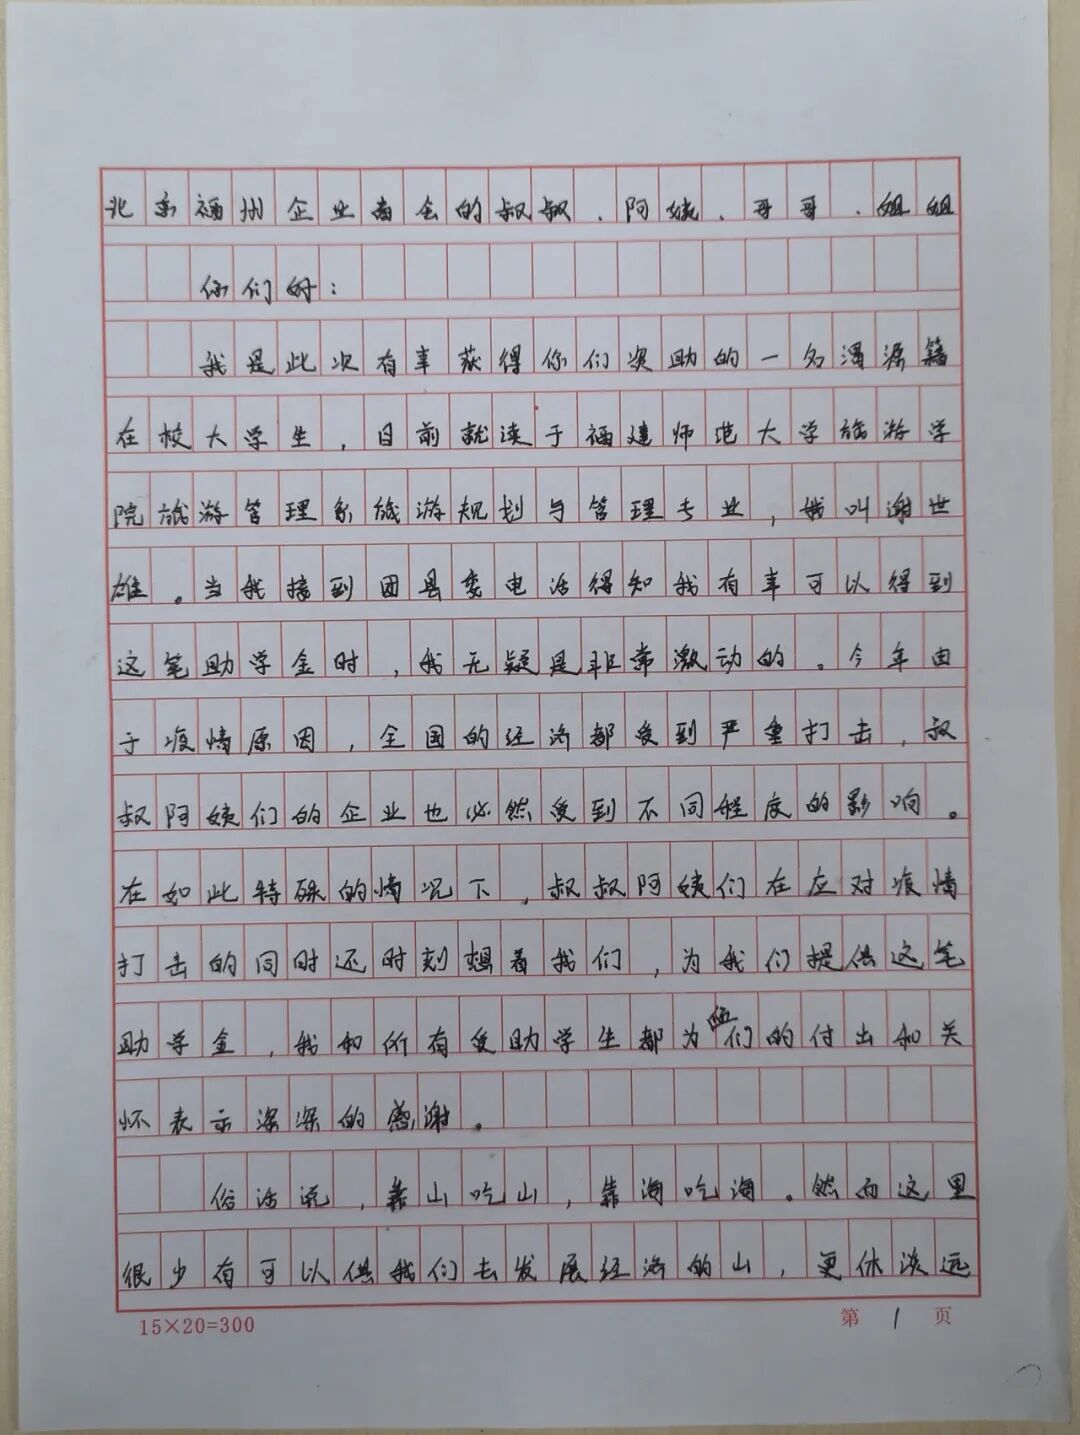 北京福州企业商会的叔叔、阿姨、哥哥、姐姐
你们好：
我是此次有幸获得你们资助的一名罗源籍
在校大学生，目前就读于福建师范大学旅游学
院旅游管理系旅游规划与管理专业，我叫谢世
雄。当我接到团县委电话得知我有幸可以得到
这笔助学金时，我无疑是非常激动的。今年由
于疫情原因，全国的经济都受到严重打击，叔
叔阿姨们的企业也必然受到不同程度的影响。
在如此特殊的情况下，叔叔阿姨们在应对疫情
打击的同时还时刻想着我们，为我们提供这笔
助学金，我和所有受助学生都为您们的付出和关
怀表示深深的感谢。
俗话说，靠山吃山，靠海吃海。然而这里
很少有可以供我们去发展经济的山，更休谈远
15×20=300
第 1 页